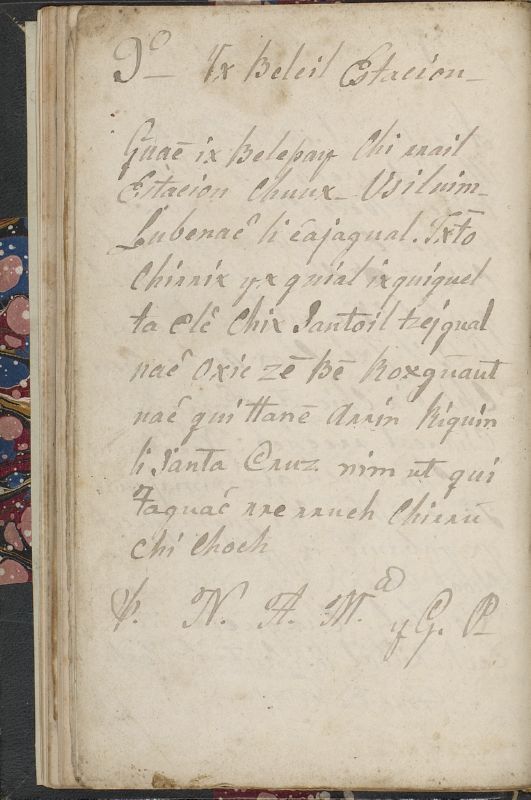 9º Vx Beleil Estacion
Guaē ix Belepay Chi rrail
Estacion Chuux Usiluim
Lubenac̑ li c̄ajagual. Jxt̄o
Chirrix yx quial ixquiquel
ta elc̑ Chix Santoil tzejqual
nac̑ oxic zē bē Roxguaut
nac̑ qui ttanē arrin Riquin
li Santa Cruz nim ut qui
taguac̑ rre rruch Chirrū
chi Choch
P. N. A. M.ª
y G. P.